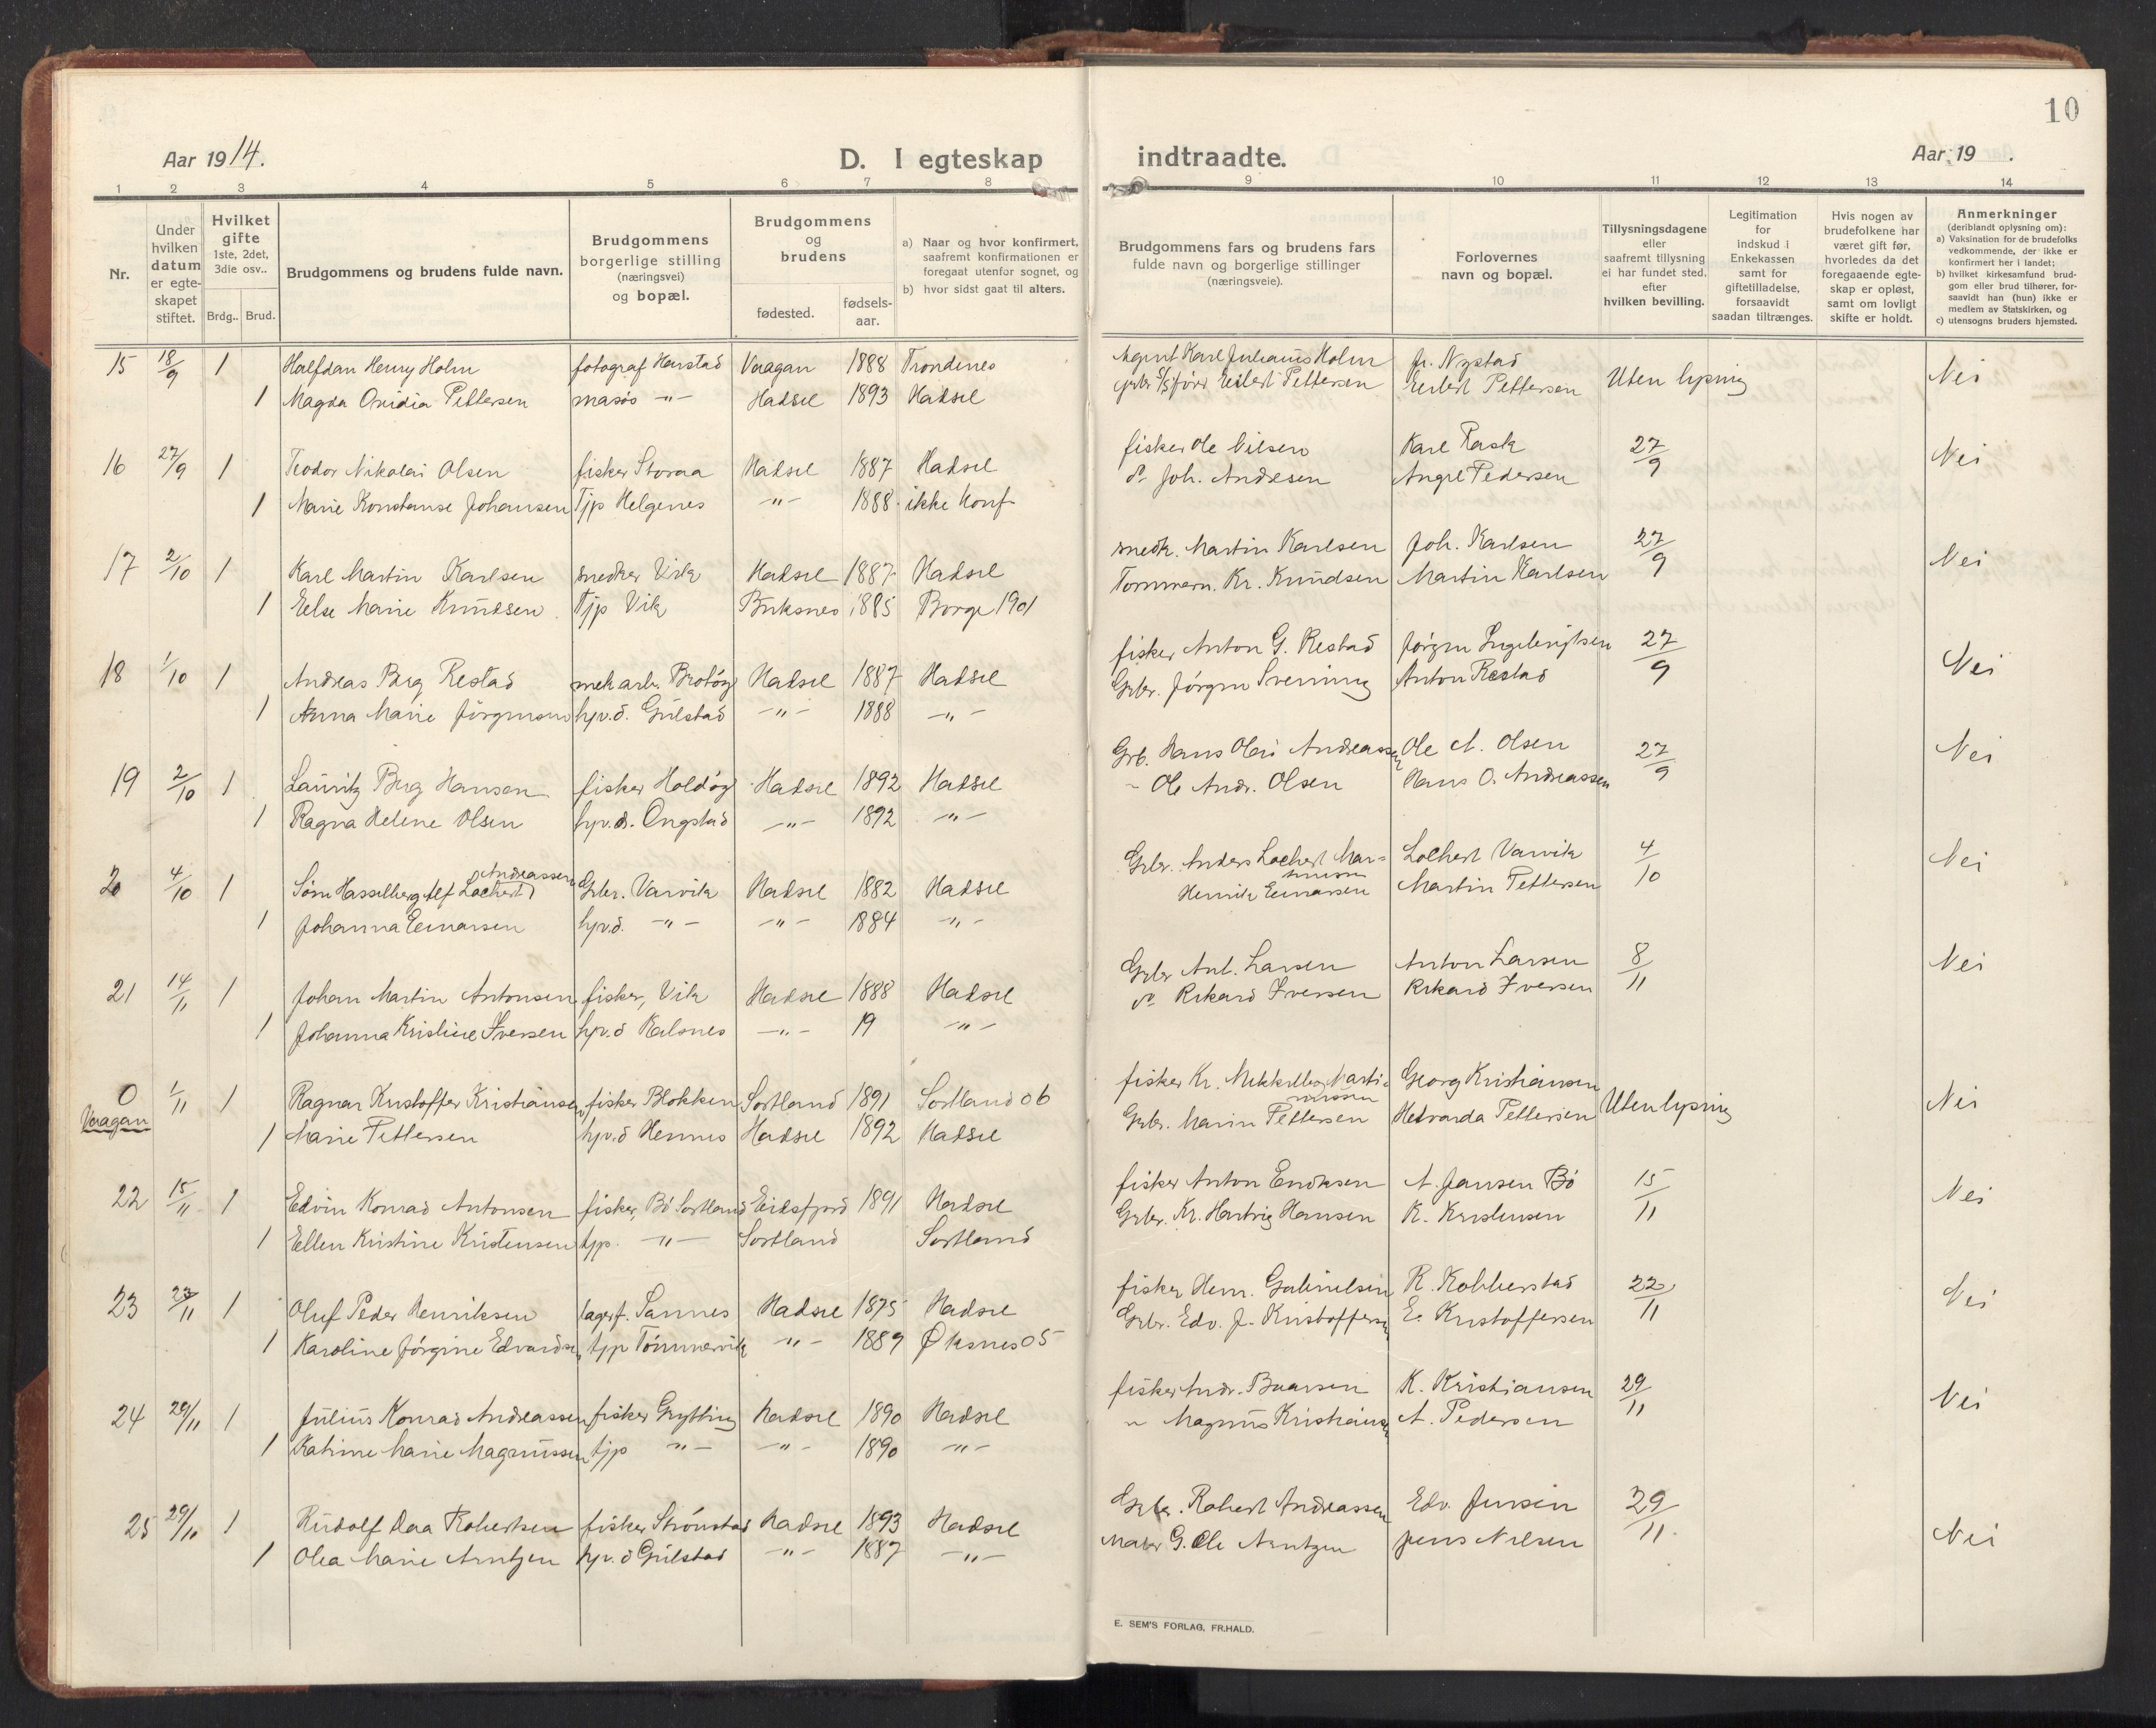 10
Aar 1914.
D. I egteskap indtraadte.
Aar 19 .
1 2 3 4 5 6 7 8 9 10 11 12 13 14
Nr.
Under hvilken datum er egteskapet stiftet.
Hvilket gifte 1ste, 2det, 3die osv..
Brdg.. Brud.
Brudgommens og brudens fulde navn.
Brudgommens borgerlige stilling (næringsvei) og bopæl.
Brudgommens og brudens
fødested.
fødsels-aar.
a) Naar og hvor konfirmert, saafremt konfirmationen er foregaat utenfor sognet, og
b) hvor sidst gaat til alters.
Brudgommens fars og brudens fars fulde navn og borgerlige stillinger (næringsveie).
Forlovernes navn og bopæl.
Tillysningsdagene eller saafremt tillysning ei har fundet sted, efter hvilken bevilling.
Legitimation for indskud i Enkekassen samt for giftetilladelse, forsaavidt saadan tiltrænges.
Hvis nogen av brudefolkene har været gift før, hvorledes da det foregaaende egteskap er opløst, samt om lovligt skifte er holdt.
Anmerkninger (deriblandt oplysning om):
a) Vaksination for de brudefolks vedkommende, der ikke er konfirmert her i landet;
b) hvilket kirkesamfund brudgom eller brud tilhører, forsaavidt han (hun) ikke er medlem av Statskirken, og
c) utensogns bruders hjemsted.
15 18/9 1 Halfdan Henry Holm fotograf Harstad Vaagan 1888 Trondenes Agent Karl Julianus Holm Fr. Nystad Uten lysning Nei
1 Magda Ovidia Pettersen -"- Hadsel 1893 Hadsel Eilert Pettersen Eilert Pettersen
16 27/9 1 Teodor Nikolai Olsen fisker Storaa Hadsel 1887 Hadsel fisker Ole Nilsen Karl Rask 27/9 Nei
1 Marie Konstanse Johansen Tjp Helgenes -"- 1888 ikke konf Joh. Andersen Angel Pedersen
17 2/10 1 Karl Martin Karlsen snedker Vik Hadsel 1887 Hadsel snedk. Martin Karlsen Joh. Karlsen 27/9 Nei
1 Else Marie Knudsen Tjp Vik Buksnes 1885 Borge 1901 Tømmerm. Kr. Knudsen Martin Karlsen
18 1/10 1 Andreas Berg Restad mek arb. Brotøy Hadsel 1887 Hadsel fisker Anton G. Restad Jørgen Ingebrigtsen 27/9 Nei
1 Anna Marie Jørgensen hjv.d. Gulstad -"- 1888 -"- Grbr. Jørgen Svenning Anton Restad
19 2/10 1 Lauritz Berg Hansen fisker Holdøy Hadsel 1892 Hadsel Grb. Hans Olai Andreassen Ole A. Olsen 27/9 Nei
1 Ragna Helene Olsen hjv.d. Ongstad -"- 1892 -"- - Ole Andr. Olsen Hans O. Andreassen
20 4/10 1 Søm Hasselberg Alf Lochert Andreassen Grbr. Varvik Hadsel 1882 Hadsel Grbr. Anders Lochert Lochert Varvik 4/10 Nei
1 Johanna Einarsen hjv.d. -"- -"- 1884 -"- Henrik Einarsen Martin Pettersen
21 14/11 1 Johan Martin Antonsen fisker, Vik Hadsel 1888 Hadsel Grbr Ant. Larsen Anton Larsen 8/11 Nei
1 Johanna Kristine Iversen hjv.d Kalsnes -"- 19 -"- Rikard Iversen Rikard Iversen
0 Vaagan 1/11 1 Ragnar Kristoffer Kristiansen fisker Blokken Sortland 1891 Sortland 06 fisker Kr. Mikkelberg Martinussen Georg Kristiansen Uten lysning Nei
1 Marie Pettersen hjv.d Hennes Hadsel 1892 Hadsel Grbr. Marin Pettersen Hedvarda Pettersen
22 15/11 1 Edvin Konrad Antonsen fisker, Bø Sortland Eidsfjord 1891 Hadsel fisker Anton Eriksen A. Jansen Bø 15/11 Nei
1 Ellen Kristine Kristensen tjp. -"- Sortland Sortland Grbr. Kr. Hartvig Hansen K. Kristensen
23 22/11 1 Oluf Peder Henriksen lagerf. Sannes Hadsel 1875 Hadsel fisker Henr. Gabrielsen R. Kobberstad 22/11 Nei
1 Karoline Jørgine Edvardsen tjp Tømmervik -"- 1889 Øksnes 05 Grbr. Edv. J. Kristoffersen E. Kristoffersen
24 29/11 1 Julius Konrad Andreassen fisker Grytting Hadsel 1890 Hadsel fisker Andr. Baarsen K. Kristiansen 29/11 Nei
1 Katrine Marie Magnussen tjp -"- -"- 1890 -"- -"- Magnus Kristiansen A. Pedersen
25 29/11 1 Rudolf Daa Robertsen fisker Strønstad Hadsel 1893 Hadsel Grbr. Robert Andreassen Edv. Jensen 29/11 Nei
1 Olea Marie Arntzen hjv.d Gulstad -"- 1887 -"- G. Ole Arntzen Jens Nilsen
E. SEM'S FORLAG, FR.HALD.